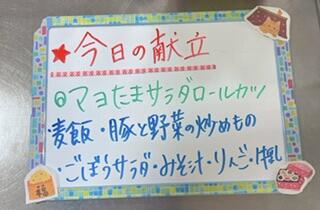 ★今日の献立
◎マヨたまサラダロールカツ
麦飯・豚と野菜の炒めもの
・ごぼうサラダ・みそ汁・りんご・牛乳
福